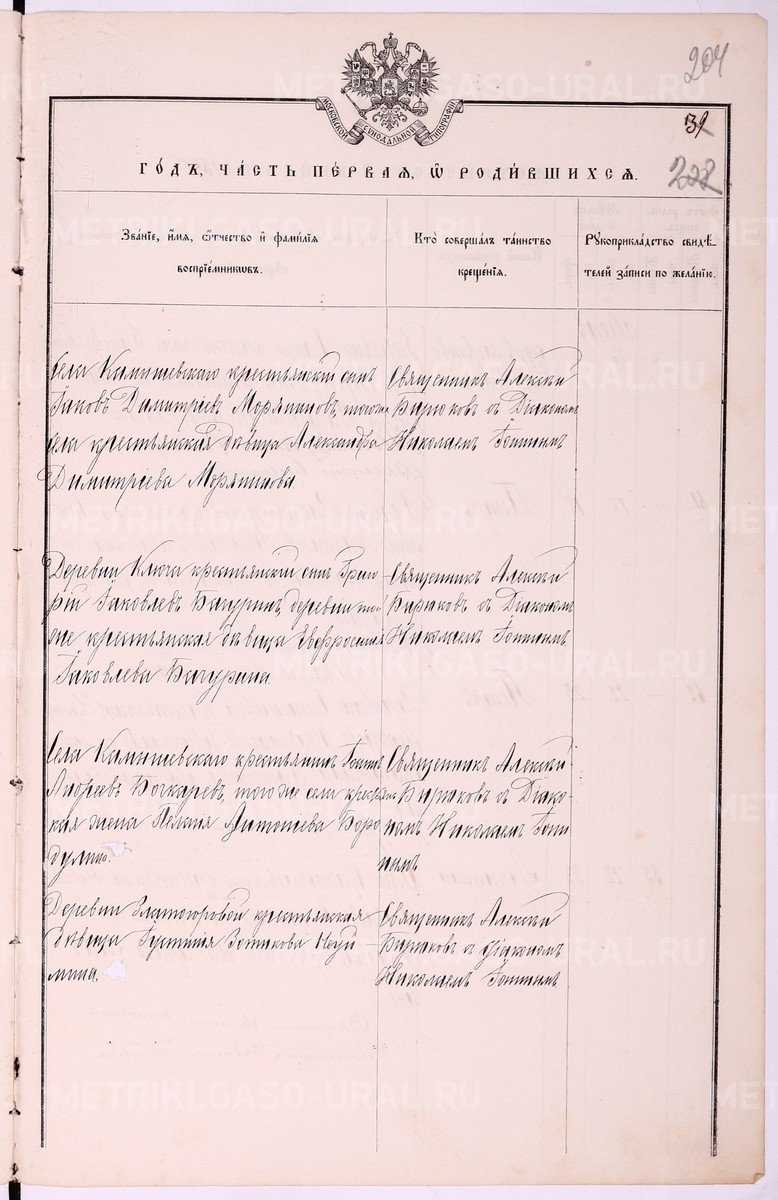 204
МОСКОВСКОЙ СУНОДАЛЬНОЙ ТИПОГРАФІИ
39
228
ГО́ДЪ, ЧА́СТЬ ПЕ́РВАЯ, Ѽ РОДИ́ВШИХСЯ.
Зва́нїе, и҆́мя, ѻ҆́тчество и҆ фами́лїя
воспрїе́мникѡвъ.
Кто̀ соверша́лъ та́инство
креще́нїя.
Рꙋкоприкла́дство свидѣ́-
телей за́писи по жела́нїю.
Села Камышевскаго крестьянскій сынъ
Іаковъ Димитріевъ Моряпиновъ, того же
села крестьянская дѣвица Александра
Димитріева Моряпинова
Священникъ Алексѣй
Бирюковъ съ Діакономъ
Николаемъ
Деревни Ключа крестьянскій сынъ Григо
рій Іаковлевъ Бачуринъ, деревни той
же крестьянская дѣвица Евфросинія
Іаковлева Бачурина
Священникъ Алексѣй
Бирюковъ съ Діакономъ
Николаемъ
Села Камышевскаго крестьянинъ
Андреевъ Бочкаревъ, того же села крестьян
кая жена Пелагія Антонова Боро
дулина.
Священникъ Алексѣй
Бирюковъ съ Діако
номъ Николаемъ
нымъ
Деревни Златогоровой крестьянская
дѣвица Іустинія Зотикова Неуй
мина.
Священникъ Алексѣй
Бирюковъ съ діакономъ
Николаемъ
METRIKI.GASO-URAL.RU